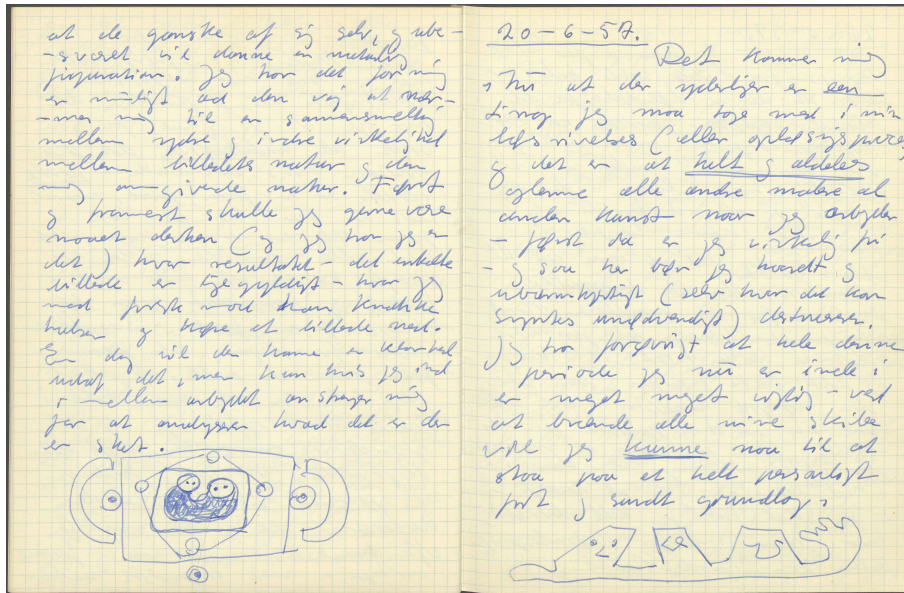 at de ganske af sig selv, og ube-
-sværet vil danne en naturlig
figuration. Jeg tror det for mig
er muligt ad den vej at nær-
-mer mig til en sammensmeltning
mellem ydre og indre virkelighed
mellem billedets natur og den
mig omgivende natur. Først
og fremmest skulle jeg gerne være
naaet derhen (og jeg tror jeg er
det) hvor resultatet - det enkelte
billede er ligegyldigt - hvor jeg
med friske mod kan knække
halsen og tabe et billede ned.
En dag vil der komme en klarhed
udaf det, men kun hvis jeg ind
i mellem arbejdet anstrenger mig
for at analysere hvad det er der
er sket.
20-6-57.
Det kommer mig
nu at der yderligere er een
ting jeg maa tage med i min
(eller opløsningsproces)
og det er at helt og aldeles
glemme alle andre malere al
anden kunst naar jeg arbejder
- først da er jeg virkelig fri
- og saa her bør jeg haardt og
ubarmhjertigt (selv hvor det kan
synes unødvendigt) destruere.
Jeg tror forøvrigt at hele denne
periode jeg nu er inde i
er meget meget vigtig - ved
at brænde alle mine skibe
vil jeg kunne naa til at
staa paa et helt personligt
frit og sundt grundlag.